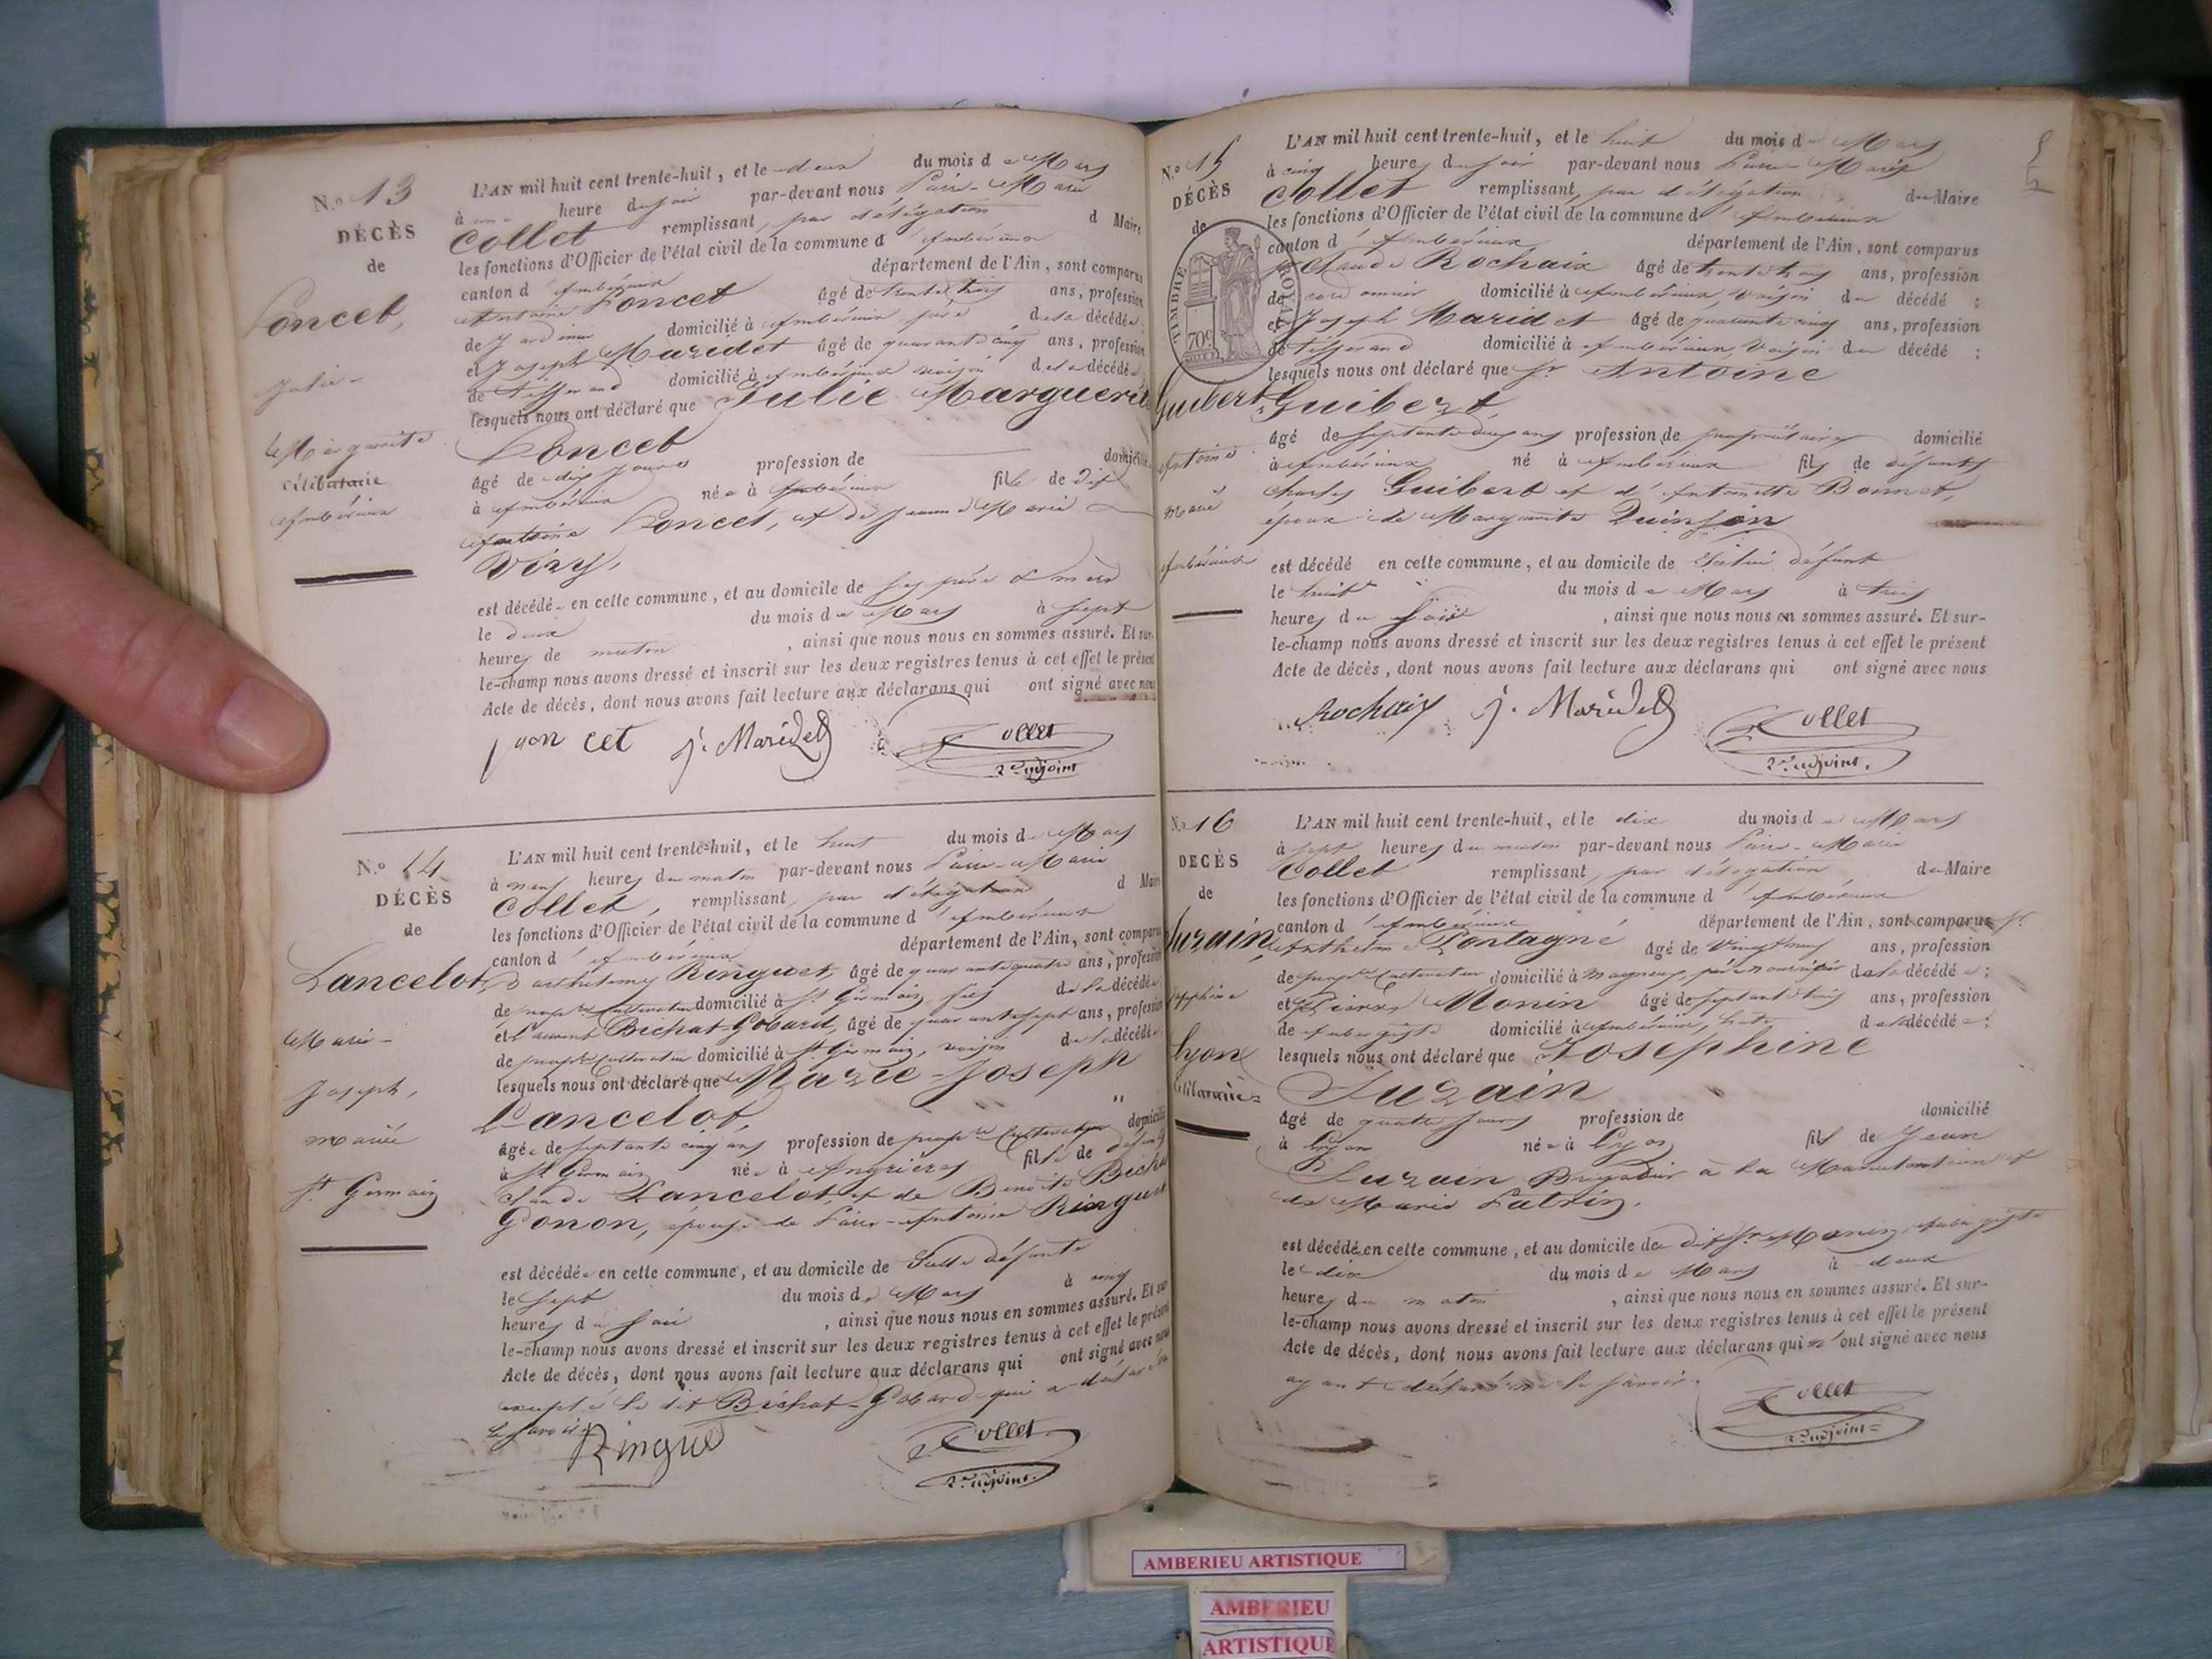 N.o 13
DÉCÈS
de
Poncet,
Julie-
Marguerite
célibataire
Ambérieux
L'AN mil huit cent trente-huit, et le deux du mois de Mars
à une heure du soir par-devant nous Pierre-Marie
Collet remplissant, par délégation d Maire
les fonctions d'Officier de l'état civil de la commune d'Ambérieux
canton d'Ambérieux département de l'Ain, sont comparus
Antoine Poncet âgé de trente trois ans, profession
de Jardinier domicilié à Ambérieux père de la décédée;
et Joseph Maridet âgé de quarante cinq ans, profession
de tisserand domicilié à Ambérieux voisin de la décédée
lesquels nous ont déclaré que Julie Marguerite
Poncet
âgé de dix jours profession de domicilié
à Ambérieux née à Ambérieux fille de dit
Antoine Poncet, et de Jeanne Marie
Véry,
est décédée en cette commune, et au domicile de ses père & mère
le deux du mois de Mars à sept
heures de matin, ainsi que nous nous en sommes assuré. Et sur-
le-champ nous avons dressé et inscrit sur les deux registres tenus à cet effet le présent
Acte de décès, dont nous avons fait lecture aux déclarans qui ont signé avec nous
pon cet j. Maridet Collet
2e adjoint
N.o 14
DÉCÈS
de
Lancelot,
Marie-
Joseph,
mariée
St Germain
L'AN mil huit cent trente-huit, et le huit du mois de Mars
à neuf heures du matin par-devant nous Pierre-Marie
Collet, remplissant, par délégation d Maire
les fonctions d'Officier de l'état civil de la commune d'Ambérieux
canton d'Ambérieux département de l'Ain, sont comparus
Barthelemy Ringuet, âgé de quarante quatre ans, profession
de propre cultivateur domicilié à St Germain, fils de la décédée
et Laurent Bichat-Gobard, âgé de quarante sept ans, profession
de propre cultivateur domicilié à St Germain, voisin de la décédée
lesquels nous ont déclaré que Marie-Joseph
Lancelot,
âgée de septante cinq ans profession de propre cultivateur domicilié
à St Germain née à Angrières fille de défunts
Claude Lancelot, et de Benoite Bichat
Gonon, épouse de Pierre-Antoine Ringuet
est décédée en cette commune, et au domicile de Ladite défunte
le sept du mois de Mars à cinq
heures du soir, ainsi que nous nous en sommes assuré. Et sur
le-champ nous avons dressé et inscrit sur les deux registres tenus à cet effet le présent
Acte de décès, dont nous avons fait lecture aux déclarans qui ont signé avec nous
excepté le dit Bichat-Gobard qui a déclaré ne
le savoir.
Ringue Collet
2e adjoint.
N.o 15
DÉCÈS
de
TIMBRE ROYAL
70c
Guibert,
Antoine
marié
Ambérieux
L'AN mil huit cent trente-huit, et le huit du mois de Mars
à cinq heures du soir par-devant nous Pierre-Marie
Collet remplissant, par délégation, du Maire
les fonctions d'Officier de l'état civil de la commune d'Ambérieux
canton d'Ambérieux département de l'Ain, sont comparus
Sr Claude Rochaix âgé de trente trois ans, profession
de cordonnier domicilié à Ambérieux, voisin du décédé;
et Joseph Maridet âgé de quarante cinq ans, profession
de tisserand domicilié à Ambérieux, voisin du décédé;
lesquels nous ont déclaré que Sr Antoine
Guibert,
âgé de septante deux ans profession de propriétaire domicilié
à Ambérieux né à Ambérieux fils de défunts
Charles Guibert et d'Antoinette Bonnet,
époux de Marguerite Quinson
est décédé en cette commune, et au domicile de Ledit défunt
le huit du mois de Mars à trois
heures du Soir, ainsi que nous nous en sommes assuré. Et sur-
le-champ nous avons dressé et inscrit sur les deux registres tenus à cet effet le présent
Acte de décès, dont nous avons fait lecture aux déclarans qui ont signé avec nous
Rochaix j. Maridet Collet
2e adjoint.
N.o 16
DÉCÈS
de
Surain,
Josephine
Lyon
célibataire
L'AN mil huit cent trente-huit, et le dix du mois de Mars
à sept heures du matin par-devant nous Pierre-Marie
Collet remplissant, par délégation du Maire
les fonctions d'Officier de l'état civil de la commune d'Ambérieux
canton d'Ambérieux département de l'Ain, sont comparus Sr
Anthelme Pontagné âgé de vingt neuf ans, profession
de propre cultivateur domicilié à père nourricier de la décédée;
et Pierre Monin âgé de septante trois ans, profession
de aubergiste domicilié à Ambérieux, de la décédée;
lesquels nous ont déclaré que Josephine
Surain
âgé de quatre jours profession de domicilié
à Lyon née à Lyon fille de Jean
Surain Brigadier à la Manutention et
de Marie Patrin.
est décédée en cette commune, et au domicile de dit Sr Monin, aubergiste
le dix du mois de Mars à deux
heures du matin, ainsi que nous nous en sommes assuré. Et sur-
le-champ nous avons dressé et inscrit sur les deux registres tenus à cet effet le présent
Acte de décès, dont nous avons fait lecture aux déclarans qui n'ont signé avec nous
ayant déclaré ne le savoir.
Collet
2e adjoint
AMBERIEU ARTISTIQUE
AMBERIEU
ARTISTIQUE